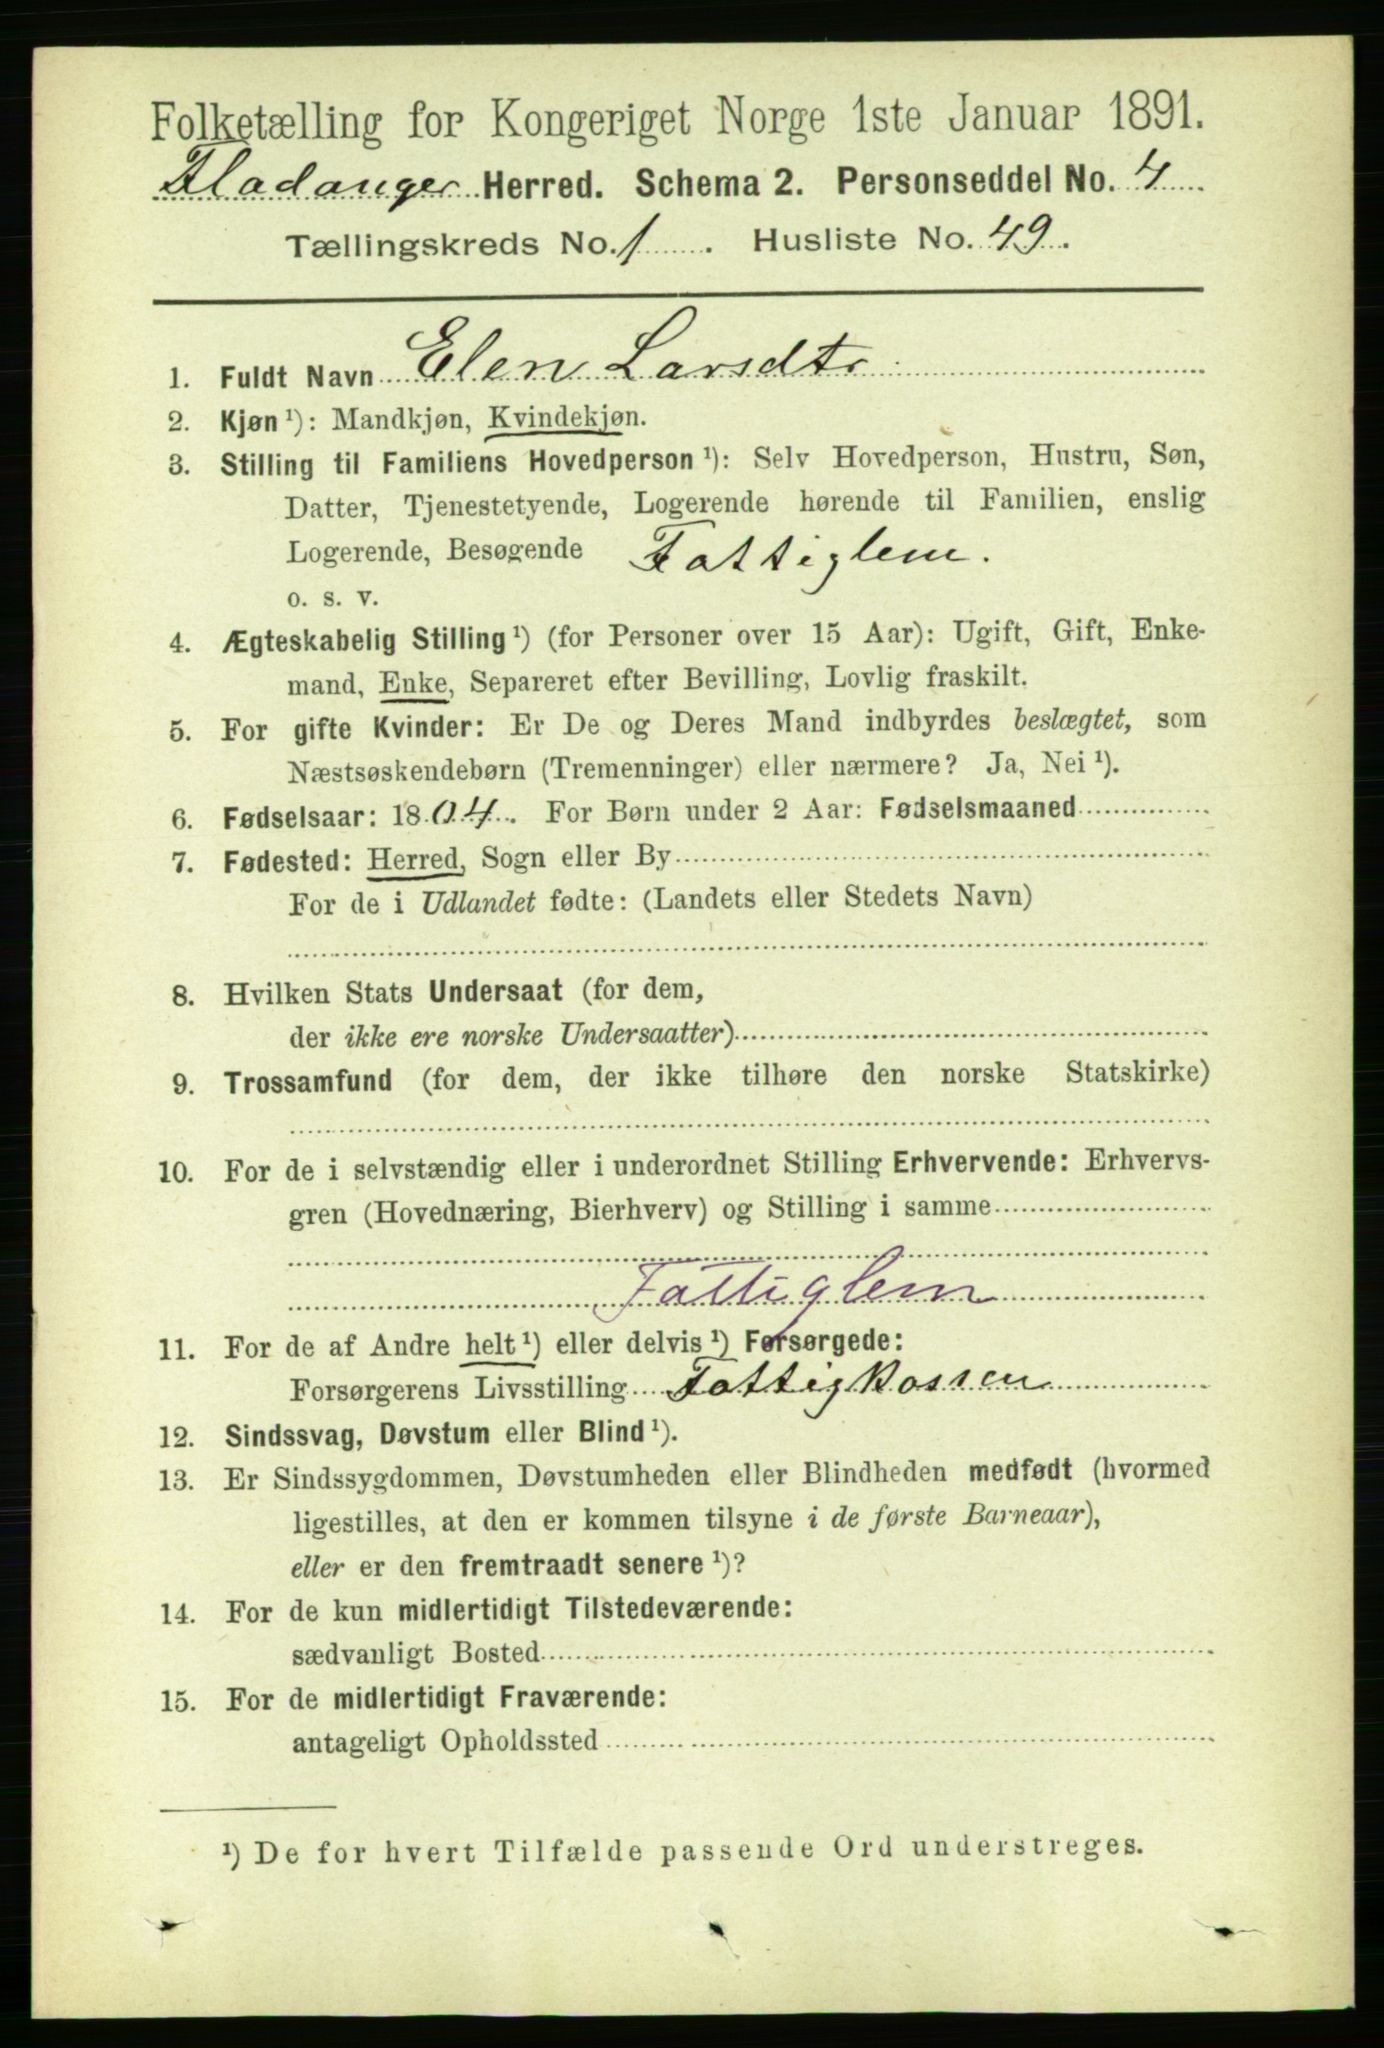 Folketælling for Kongeriget Norge 1ste Januar 1891.
Fladanger Herred. Schema 2. Personseddel No. 4
Tællingskreds No. 1. Husliste No. 49.
1. Fuldt Navn Elen Larsdtr
2. Kjøn ¹): Mandkjøn, Kvindekjøn.
3. Stilling til Familiens Hovedperson ¹): Selv Hovedperson, Hustru, Søn,
Datter, Tjenestetyende, Logerende hørende til Familien, enslig
Logerende, Besøgende Fattiglem.
o. s. v.
4. Ægteskabelig Stilling ¹) (for Personer over 15 Aar): Ugift, Gift, Enke-
mand, Enke, Separeret efter Bevilling, Lovlig fraskilt.
5. For gifte Kvinder: Er De og Deres Mand indbyrdes beslægtet, som
Næstsøskendebørn (Tremenninger) eller nærmere? Ja, Nei ¹).
6. Fødselsaar: 1804. For Børn under 2 Aar: Fødselsmaaned
7. Fødested: Herred, Sogn eller By
For de i Udlandet fødte: (Landets eller Stedets Navn)
8. Hvilken Stats Undersaat (for dem,
der ikke ere norske Undersaatter)
9. Trossamfund (for dem, der ikke tilhøre den norske Statskirke)
10. For de i selvstændig eller i underordnet Stilling Erhvervende: Erhvervs-
gren (Hovednæring, Bierhverv) og Stilling i samme
Fattiglem
11. For de af Andre helt ¹) eller delvis ¹) Forsørgede:
Forsørgerens Livsstilling Fattigkassen
12. Sindssvag, Døvstum eller Blind ¹).
13. Er Sindssygdommen, Døvstumheden eller Blindheden medfødt (hvormed
ligestilles, at den er kommen tilsyne i de første Barneaar),
eller er den fremtraadt senere ¹)?
14. For de kun midlertidigt Tilstedeværende:
sædvanligt Bosted
15. For de midlertidigt Fraværende:
antageligt Opholdssted
¹) De for hvert Tilfælde passende Ord understreges.